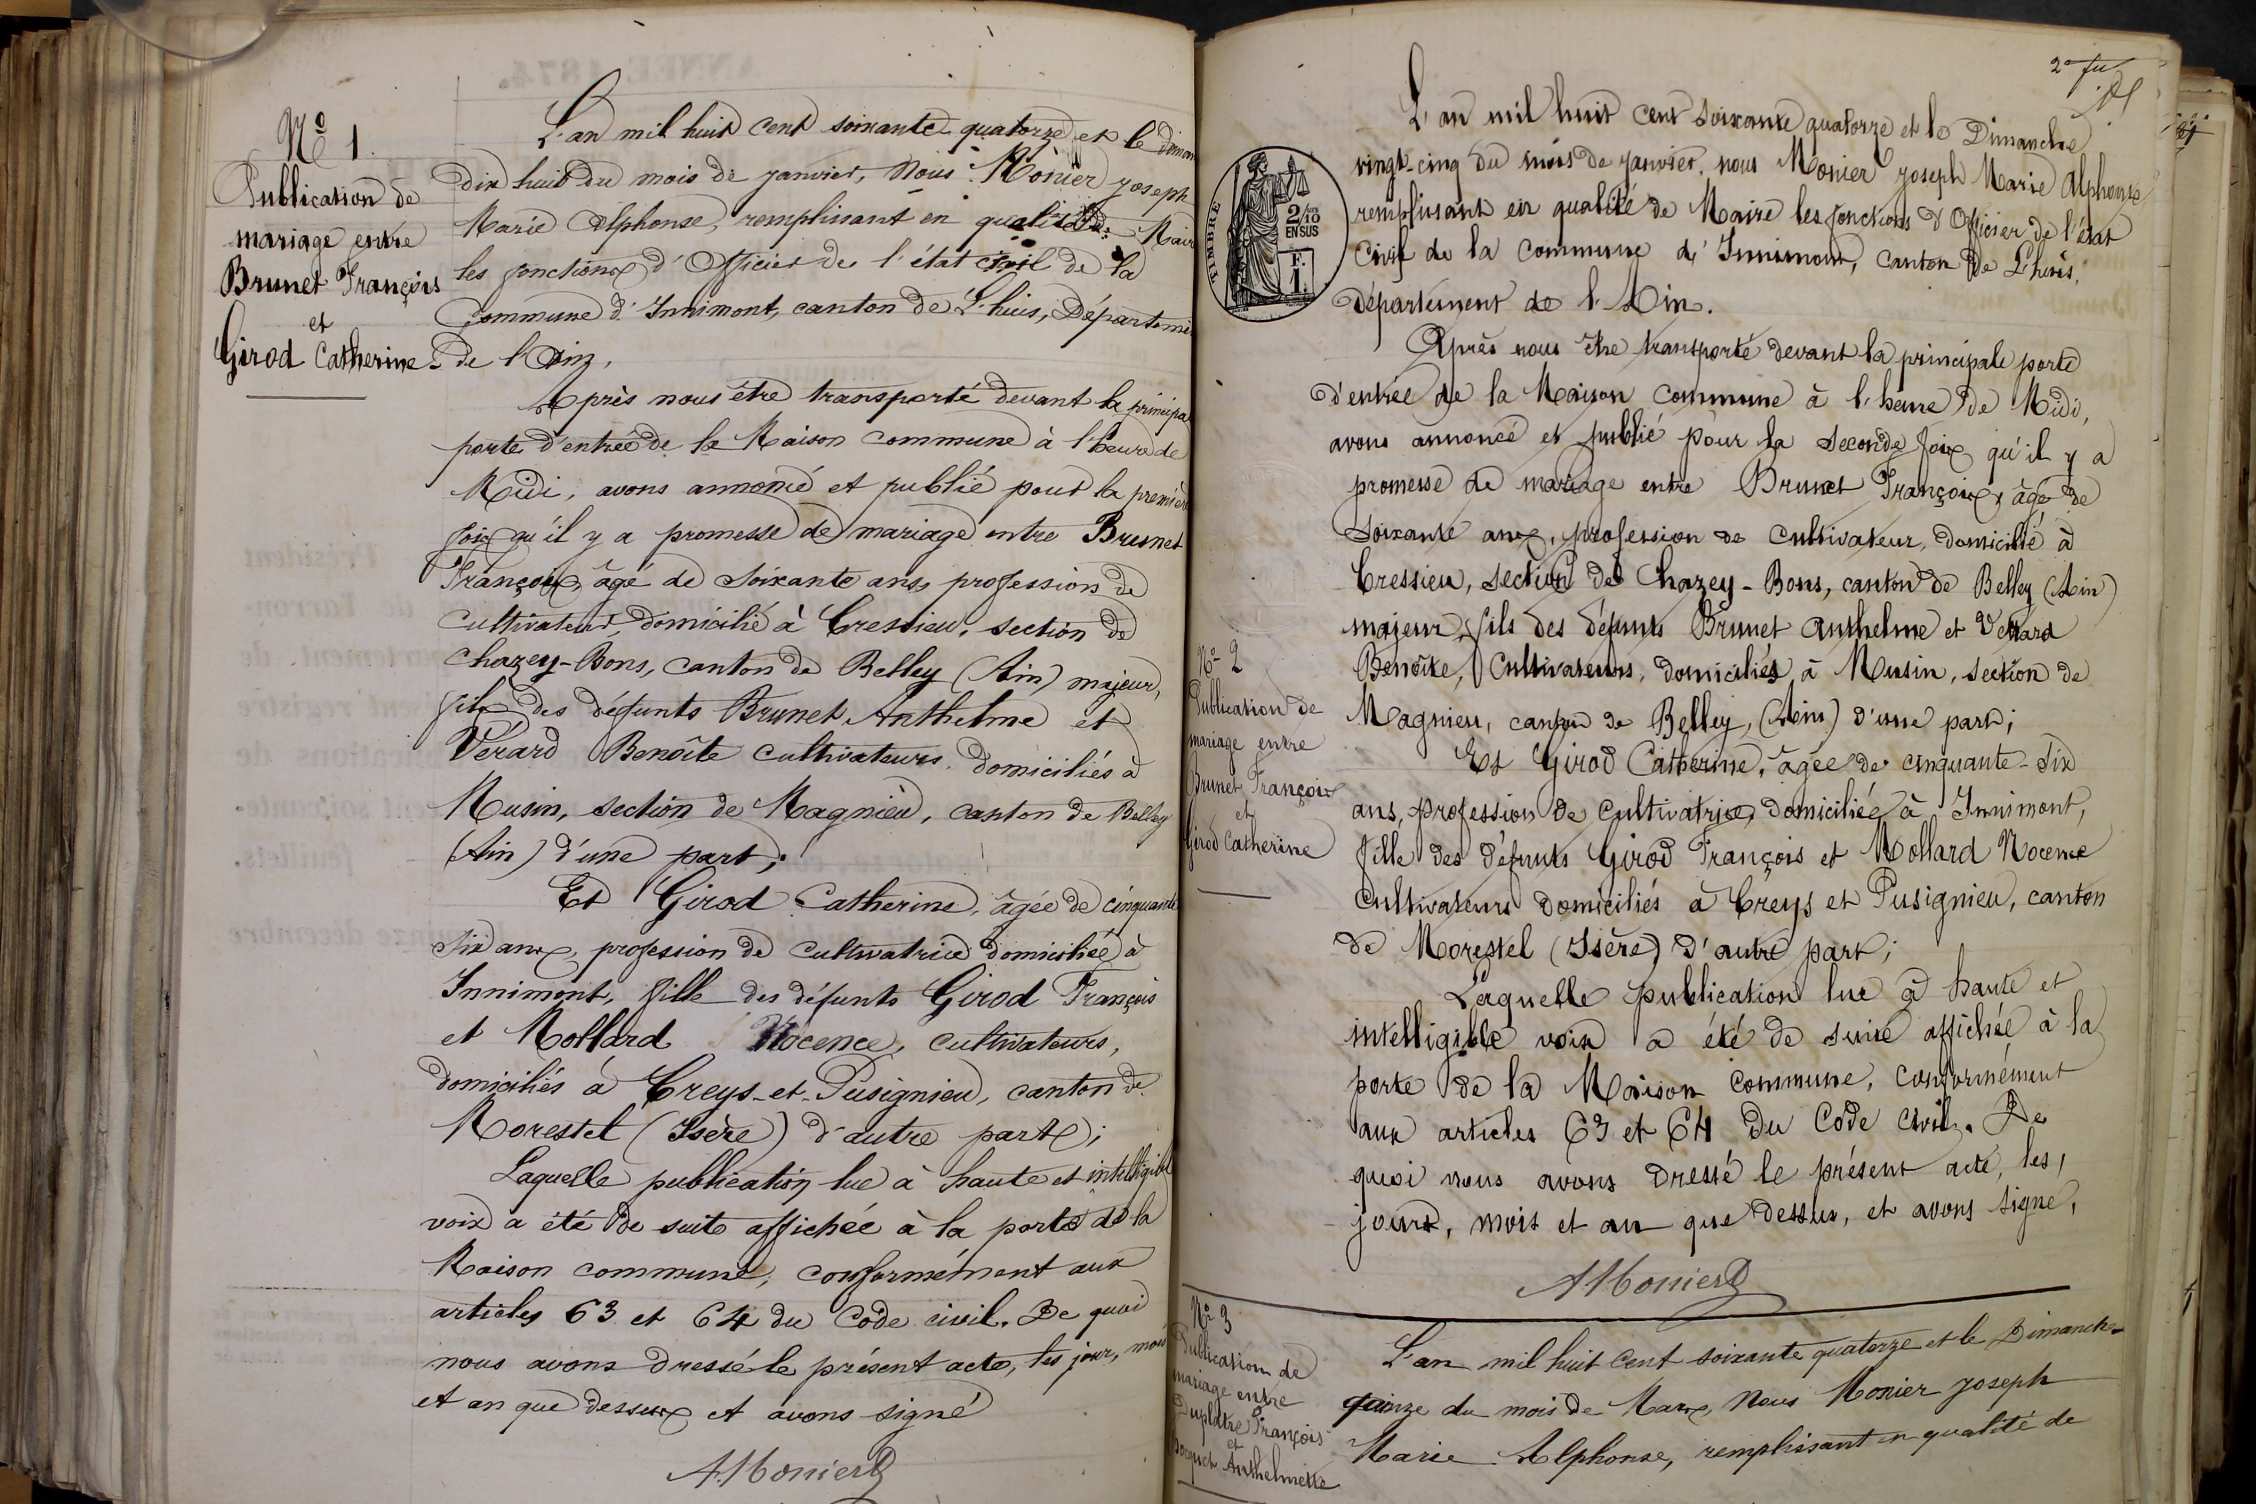 Nº 1.
Publication de
mariage entre
Brunet François
et
Girod Catherine
L'an mil huit cent soixante quatorze et le diman
dix huit du mois de janvier, Nous Monier Joseph
Marie Alphonse, remplissant en qualité de Mair
les fonctions d'Officier de l'état civil de la
Commune d'Innimont, canton de L'huis, Départeme
de l'Ain.
Après nous être transporté devant la principa
porte d'entrée de la Maison commune à l'heure de
Midi, avons annoncé et publié pour la premièr
fois qu'il y a promesse de mariage entre Brunet
François, âgé de soixante ans, profession de
cultivateur, domicilié à Cressieu, section de
Chazey-Bons, canton de Belley (Ain) majeur,
fils des défunts Brunet Anthelme et
Vérard Benoîte cultivateurs, domiciliés à
Musin, section de Magnieu, canton de Belley
(Ain) d'une part;
Et Girod Catherine, âgée de cinquante
six ans, profession de cultivatrice domiciliée à
Innimont, fille des défunts Girod François
et Mollard Nocence, cultivateurs,
domiciliés à Creys-et-Pusignieu, canton de
Morestel (Isère) d'autre part;
Laquelle publication lue à haute et intelligibl
voix a été de suite affichée à la porte de la
Maison commune, conformément aux
articles 63 et 64 du Code civil. De quoi
nous avons dressé le présent acte, les jour, mois
et an que dessus et avons signé
AMonier
2e fu
TIMBRE
2/10
EN SUS
F.
1.
L'an mil huit cent soixante quatorze et le Dimanche
vingt-cinq du mois de janvier, nous Monier Joseph Marie Alphonse
remplissant en qualité de Maire les fonctions d'Officier de l'état
Civil de la commune d'Innimont, canton de L'huis,
département de l'Ain.
Après nous être transporté devant la principale porte
d'entrée de la Maison commune à l'heure de Midi,
avons annoncé et publié pour la seconde fois qu'il y a
promesse de mariage entre Brunet François, âgé de
soixante ans, profession de cultivateur, domicilié à
Cressieu, section de Chazey-Bons, canton de Belley (Ain)
majeur, fils des défunts Brunet Anthelme et Vérard
Benoîte, Cultivateurs, domiciliés à Musin, section de
Magnieu, canton de Belley, (Ain) d'une part;
Et Girod Catherine, âgée de cinquante-six
ans, profession de cultivatrice, domiciliée à Innimont,
fille des défunts Girod François et Mollard Nocence
cultivateurs domiciliés à Creys et Pusignieu, canton
de Morestel (Isère) d'autre part;
Laquelle publication lue à haute et
intelligible voix a été de suite affichée à la
porte de la Maison commune, conformément
aux articles 63 et 64 du Code civil. De
quoi nous avons dressé le présent acte, les,
jours, mois et an que dessus, et avons signé,
AMonier
Nº 2
Publication de
mariage entre
Brunet François
et
Girod Catherine
Nº 3
Publication de
mariage entre
Duplâtre François
et
Anthelmette
L'an mil huit cent soixante quatorze et le Dimanche
quinze du mois de Mars, Nous Monier Joseph
Marie Alphonse, remplissant en qualité de